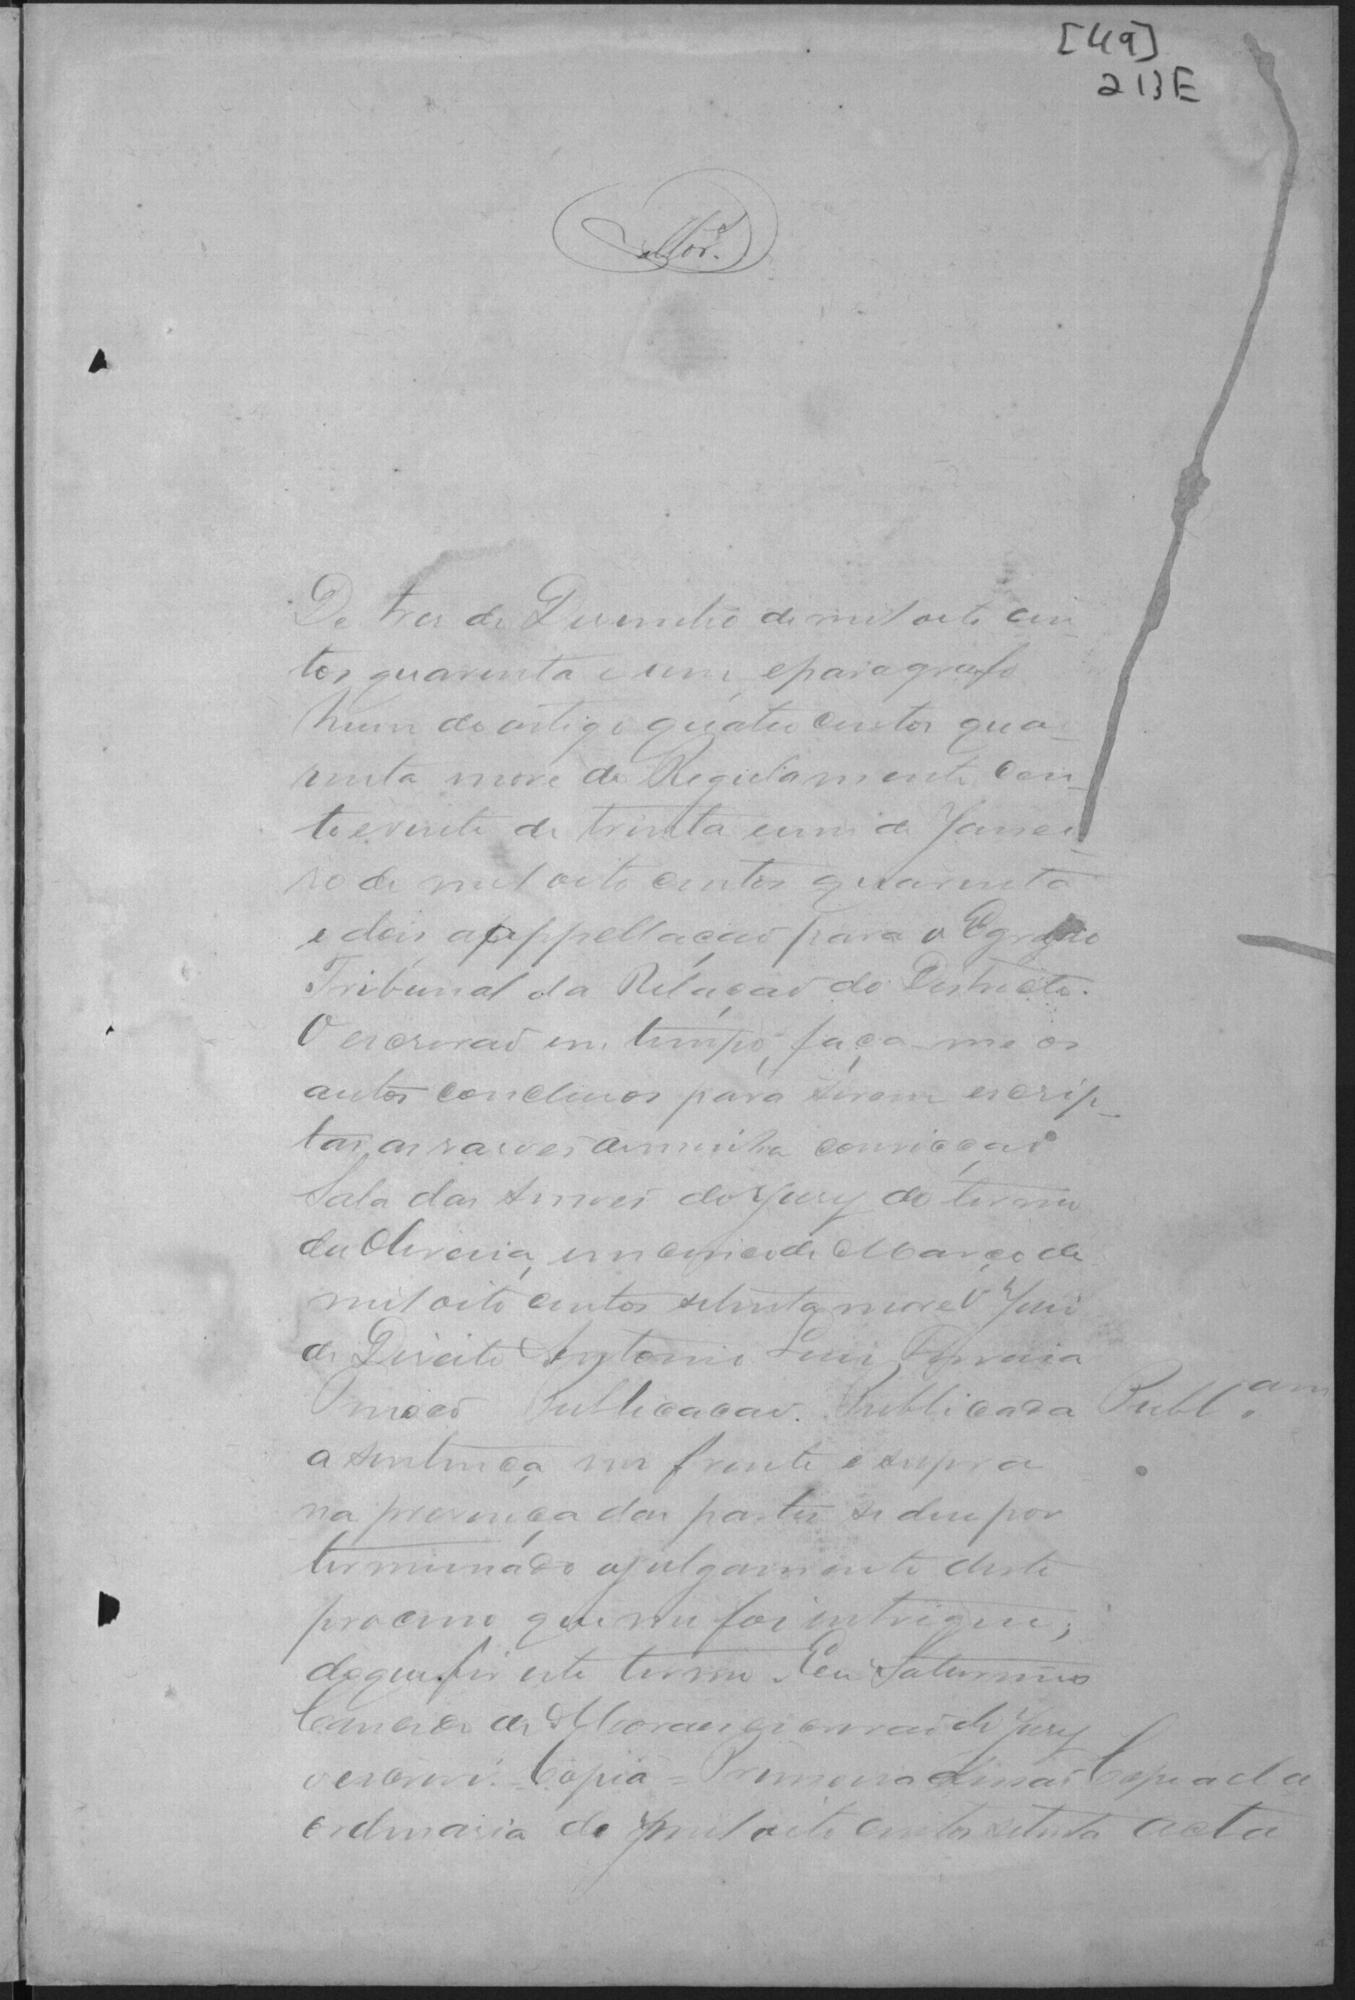 [49]
213E
Mor.
De tres de Dezembro de mil oito cen-
tos quarenta e um, e paragrafo
hum do artigo quatro centos qua-
renta nove do Regulamento cen-
to e vinte de trinta e um de Janei-
ro de mil oito centos quarenta
e dois, a appellação para o Egregio
Tribunal da Relação do Districto.
O escrivaõ em tempo, faça-me os
autos conclusos para serem escrip-
tas as rasoes de minha convicçaõ
Sala das sessoes do Jury do termo
da Oliveira, em cinco de Março de
mil oito centos setenta nove O Juiz
de Direito Antonio Luiz Ferreira
Publicaçaõ. Publicada
Publ.am
a sentença em frente e supra
na presença das partes se deu por
terminado o julgamento deste
processo que me foi entregue;
do que fiz este termo. Eu Saturnino
de Moraes escrivaõ do Jury
o escrevi. Copia = Primeira sessaõ
Copia da
ordinaria de mil oito centos setenta
acta